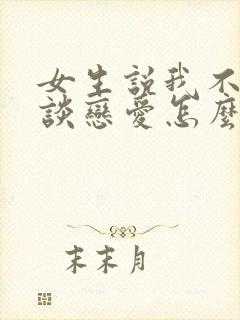 女生說我不
談戀愛怎麼
末末月